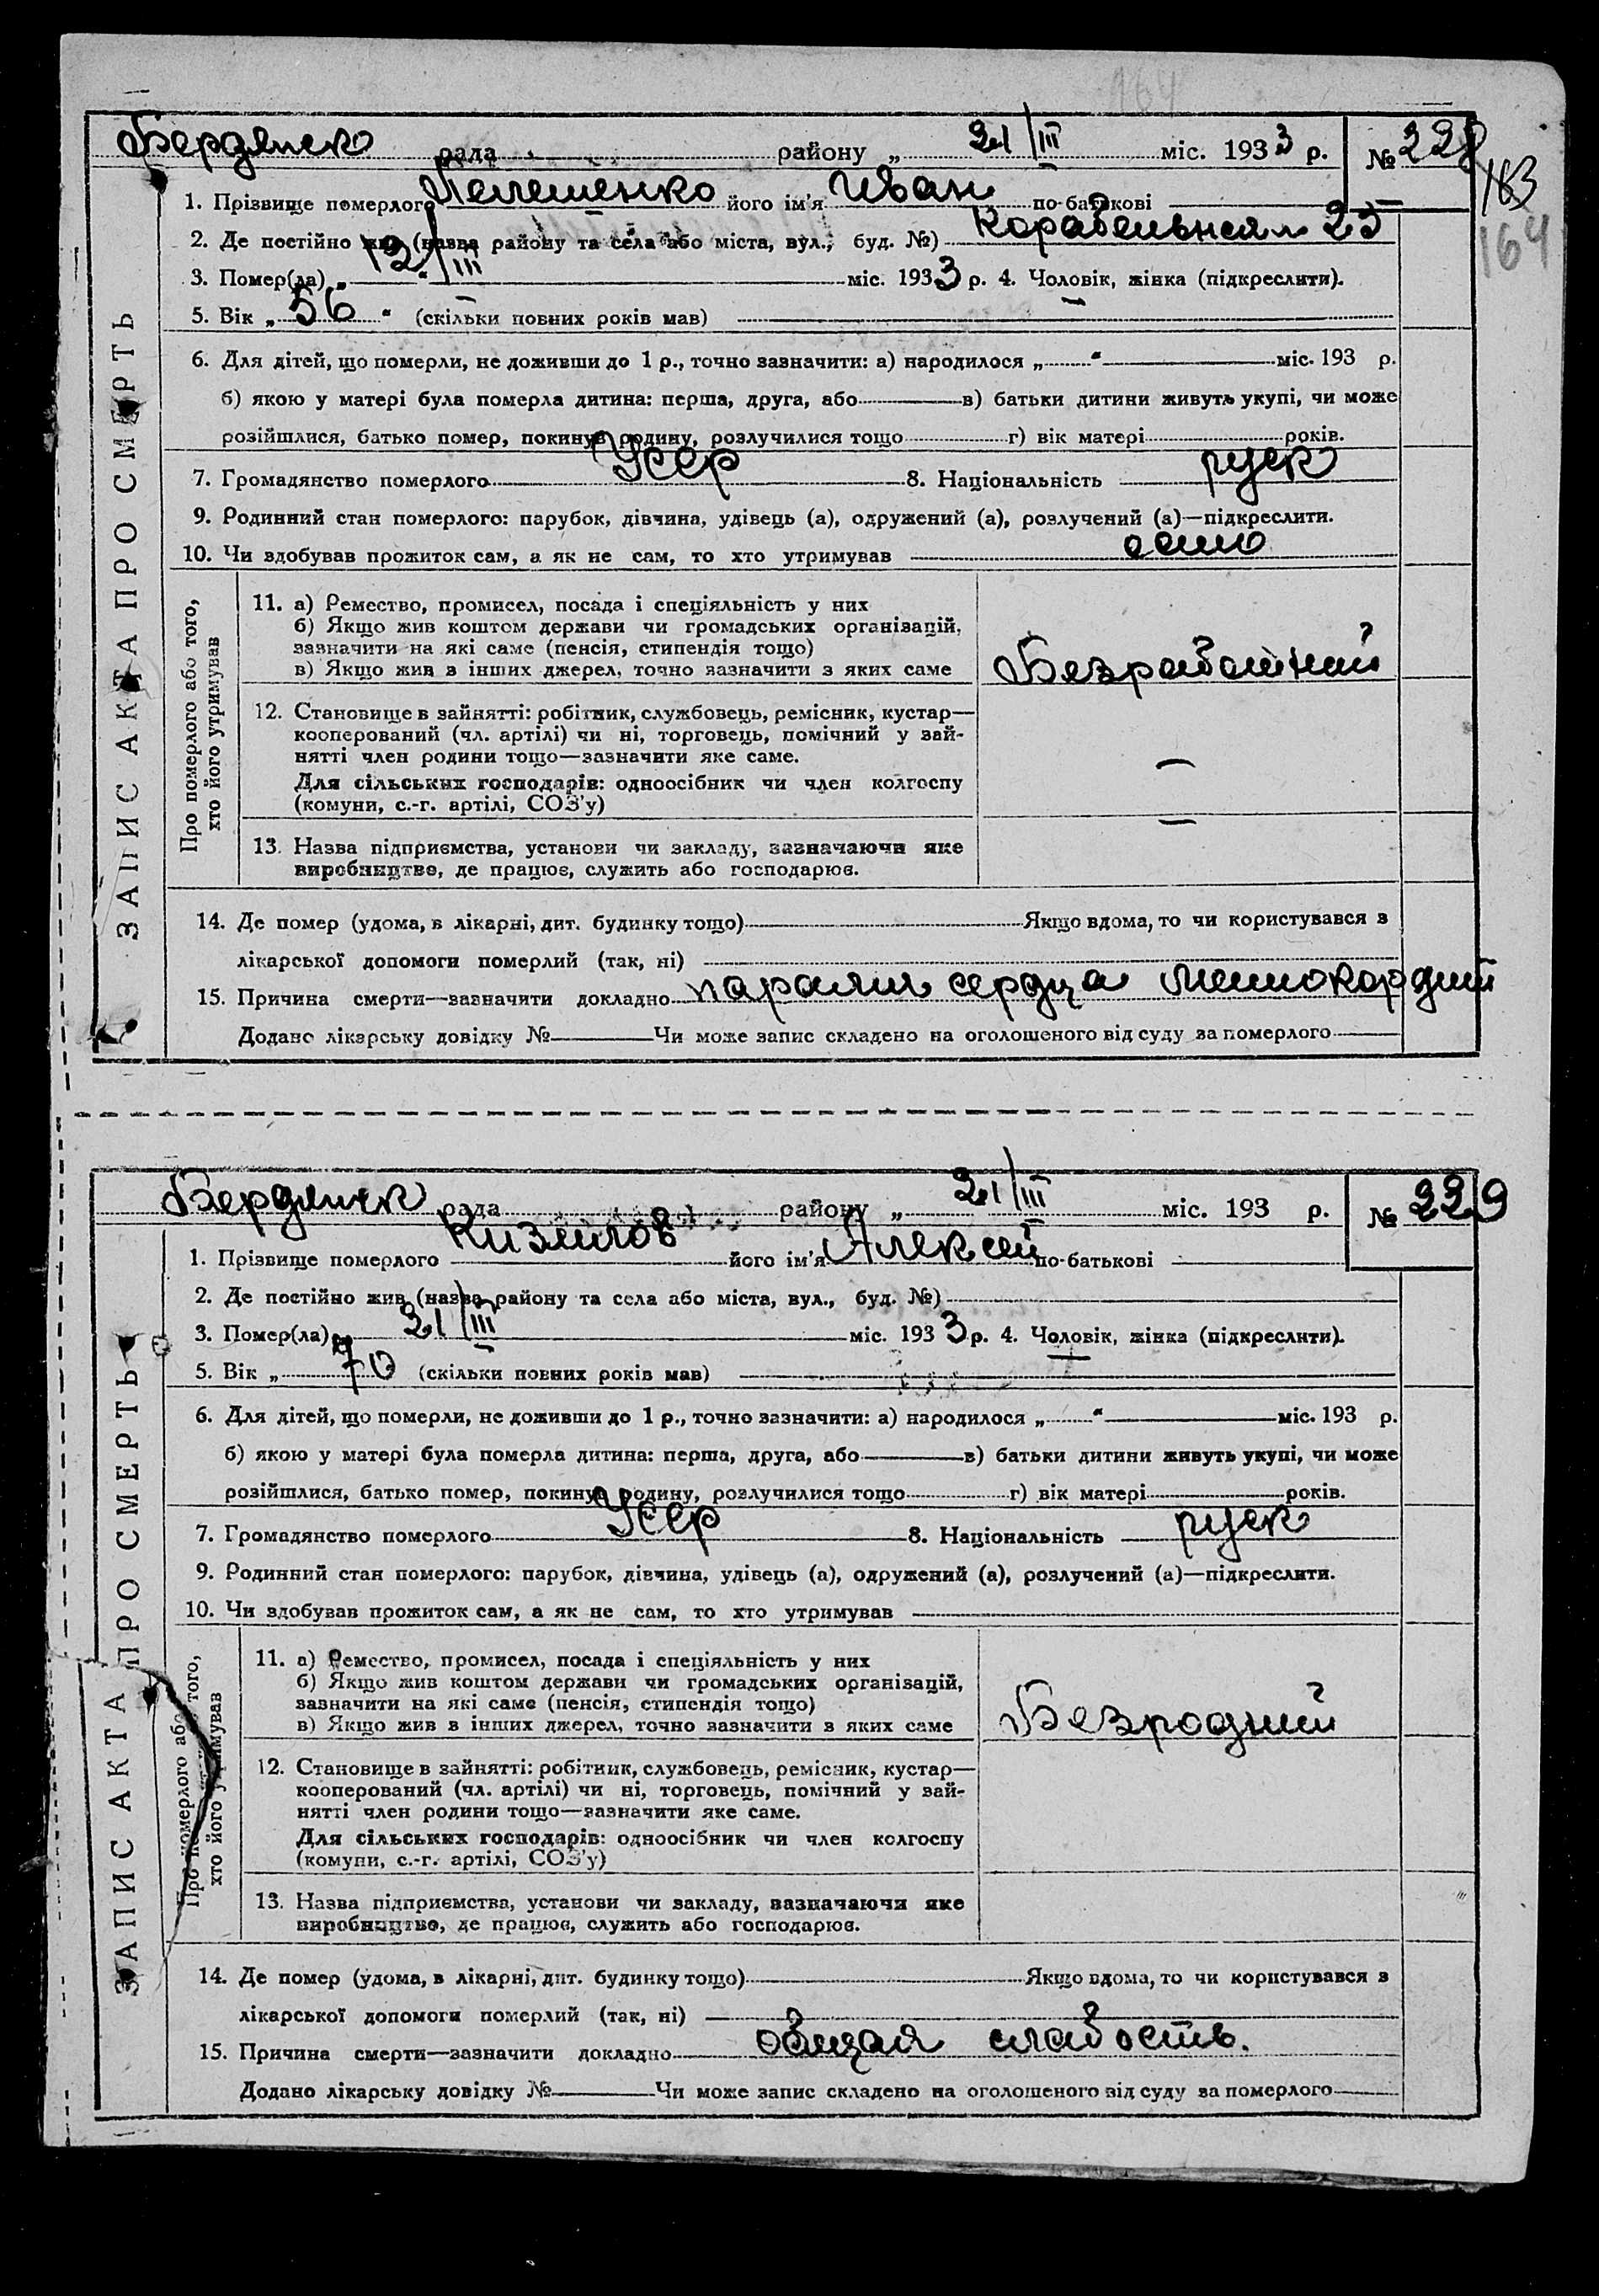 164
Бердянск рада району „ 21/III міс. 1933 р. № 228
163
164
1. Прізвище померлого його ім'я Иван по-батькові
2. Де постійно жив (назва району та села або міста, вул., буд. №) Корабельная 25
3. Помер(ла) „ 12/III міс. 1933 р. 4. Чоловік, жінка (підкреслити).
5. Вік „ 56 " (скільки повних років мав)
6. Для дітей, що померли, не доживши до 1 р., точно зазначити: а) народилося „ " міс. 193 р.
б) якою у матері була померла дитина: перша, друга, або в) батьки дитини живуть укупі, чи може
розійшлися, батько помер, покинув родину, розлучилися тощо г) вік матері років.
7. Громадянство померлого Усср 8. Національність руск
9. Родинний стан померлого: парубок, дівчина, удівець (а), одружений (а), розлучений (а)—підкреслити.
10. Чи здобував прожиток сам, а як не сам, то хто утримував
ЗАПИС АКТА ПРО СМЕРТЬ
Про померлого або того,
хто його утримував
11. а) Ремество, промисел, посада і спеціяльність у них
б) Якщо жив коштом держави чи громадських організацій,
зазначити на які саме (пенсія, стипендія тощо)
в) Якщо жив з інших джерел, точно зазначити з яких саме Безработный
12. Становище в зайнятті: робітник, службовець, ремісник, кустар—
кооперований (чл. артілі) чи ні, торговець, помічний у зай-
нятті член родини тощо—зазначити яке саме.
Для сільських господарів: одноосібник чи член колгоспу
(комуни, с.-г. артілі, СОЗ'у)
13. Назва підприємства, установи чи закладу, зазначаючи яке
виробництво, де працює, служить або господарює.
14. Де помер (удома, в лікарні, дит. будинку тощо) Якщо вдома, то чи користувався з
лікарської допомоги померлий (так, ні)
15. Причина смерти—зазначити докладно паралич сердца
Додано лікарську довідку № Чи може запис складено на оголошеного від суду за померлого
Бердянск рада району „ 21/III міс. 193 р. № 229
1. Прізвище померлого Кизилов його ім'я Алексей по-батькові
2. Де постійно жив (назва району та села або міста, вул., буд. №)
3. Помер(ла) „ 21/III міс. 1933 р. 4. Чоловік, жінка (підкреслити).
5. Вік „ 70 (скільки повних років мав)
6. Для дітей, що померли, не доживши до 1 р., точно зазначити: а) народилося „ " міс. 193 р.
б) якою у матері була померла дитина: перша, друга, або в) батьки дитини живуть укупі, чи може
розійшлися, батько помер, покинув родину, розлучилися тощо г) вік матері років.
7. Громадянство померлого Усср 8. Національність руск
9. Родинний стан померлого: парубок, дівчина, удівець (а), одружений (а), розлучений (а)—підкреслити.
10. Чи здобував прожиток сам, а як не сам, то хто утримував
ЗАПИС АКТА ПРО СМЕРТЬ
Про померлого або того,
хто його утримував
11. а) Ремество, промисел, посада і спеціяльність у них
б) Якщо жив коштом держави чи громадських організацій,
зазначити на які саме (пенсія, стипендія тощо)
в) Якщо жив з інших джерел, точно зазначити з яких саме Безродный
12. Становище в зайнятті: робітник, службовець, ремісник, кустар—
кооперований (чл. артілі) чи ні, торговець, помічний у зай-
нятті член родини тощо—зазначити яке саме.
Для сільських господарів: одноосібник чи член колгоспу
(комуни, с.-г. артілі, СОЗ'у)
13. Назва підприємства, установи чи закладу, зазначаючи яке
виробництво, де працює, служить або господарює.
14. Де помер (удома, в лікарні, дит. будинку тощо) Якщо вдома, то чи користувався з
лікарської допомоги померлий (так, ні)
15. Причина смерти—зазначити докладно общая слабость.
Додано лікарську довідку № Чи може запис складено на оголошеного від суду за померлого